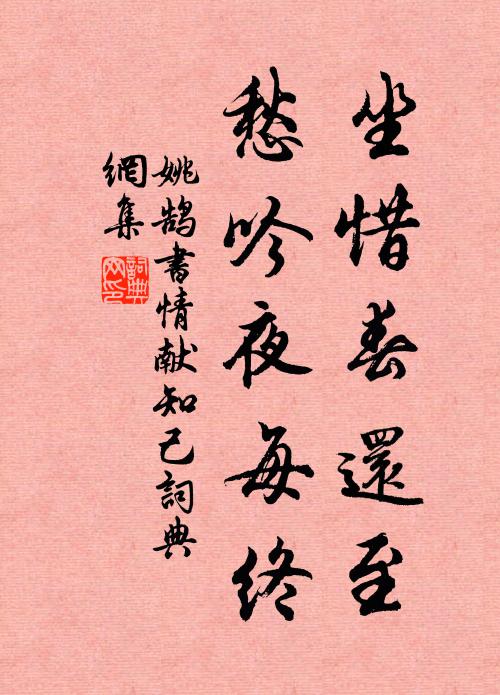 坐惜春還至
愁吟夜每終
姚鵠書情献知己詞典
網集
詞典
网印